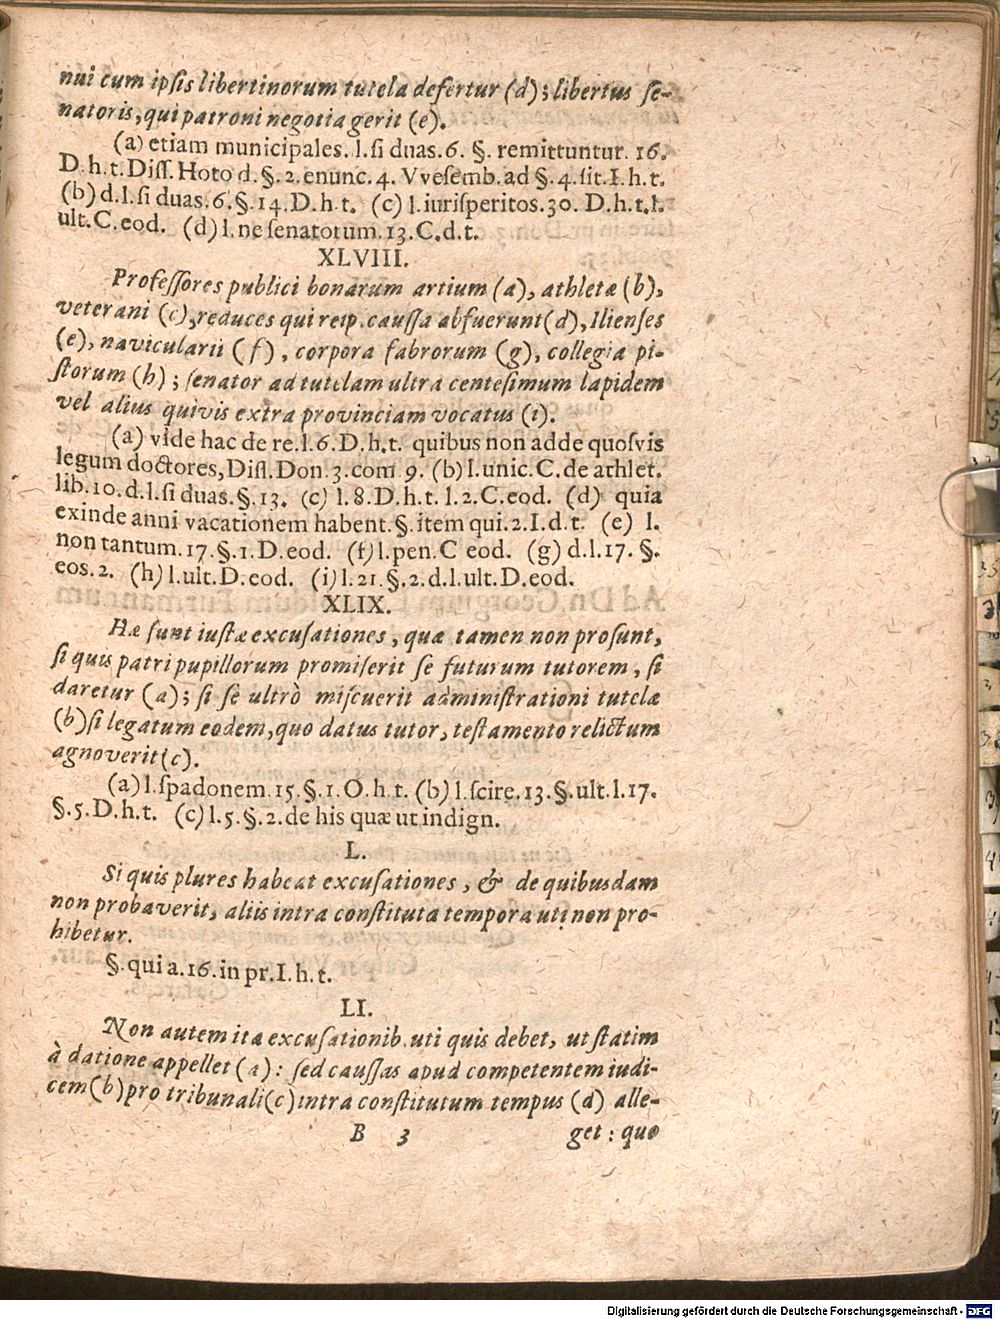 nui cum ipſis libertinorum tutela defertur (d); libertus ſe-
natoris, qui patroni negotia gerit (e).
(a) etiam municipales. l. ſi duas. 6. §. remittuntur. 16.
D. h. t. Diſſ. Hoto d. §. 2. enunc. 4. VVeſemb. ad §. 4. ſit. I. h. t.
(b) d. l. ſi duas. 6. §. 14. D. h. t. (c) l. iuriſperitos. 30. D. h. t. l.
ult. C. eod. (d) l. ne ſenatorum. 13. C. d. t.
XLVIII.
Profeſſores publici bonarum artium (a), athletæ (b),
veterani (c), reduces qui reip. cauſſa abfuerunt (d), Ilienſes
(e), navicularii (f), corpora fabrorum (g), collegia pi-
ſtorum (h); ſenator ad tutelam ultra centeſimum lapidem
vel alius quivis extra provinciam vocatus (i).
(a) vide hac de re. l. 6. D. h. t. quibus non adde quoſvis
legum doctores, Diſſ. Don. 3. com 9. (b) l. unic. C. de athlet.
lib. 10. d. l. ſi duas. §. 13. (c) l. 8. D. h. t. l. 2. C. eod. (d) quia
exinde anni vacationem habent. §. item qui. 2. I. d. t. (e) l.
non tantum. 17. §. 1. D. eod. (f) l. pen. C eod. (g) d. l. 17. §.
eos. 2. (h) l. ult. D. eod. (i) l. 21. §. 2. d. l. ult. D. eod.
XLIX.
Hæ ſunt iuſtæ excuſationes, quæ tamen non proſunt,
ſi quis patri pupillorum promiſerit ſe futurum tutorem, ſi
daretur (a); ſi ſe ultrò miſcuerit adminiſtrationi tutelæ
(b) ſi legatum eodem, quo datus tutor, teſtamento relictum
agnoverit (c).
(a) l. ſpadonem. 15. §. 1. O. h. t. (b) l. ſcire. 13. §. ult. l. 17.
§. 5. D. h. t. (c) l. 5. §. 2. de his quæ ut indign.
L.
Si quis plures habeat excuſationes, & de quibusdam
non probaverit, aliis intra conſtituta tempora uti non pro-
hibetur.
§. qui a. 16. in pr. I. h. t.
LI.
Non autem ita excuſationib. uti quis debet, ut ſtatim
à datione appellet (a): ſed cauſſas apud competentem iudi-
cem (b) pro tribunali (c) intra conſtitutum tempus (d) alle-
B 3 get: quo
Digitalisierung gefördert durch die Deutsche Forschungsgemeinschaft - DFG